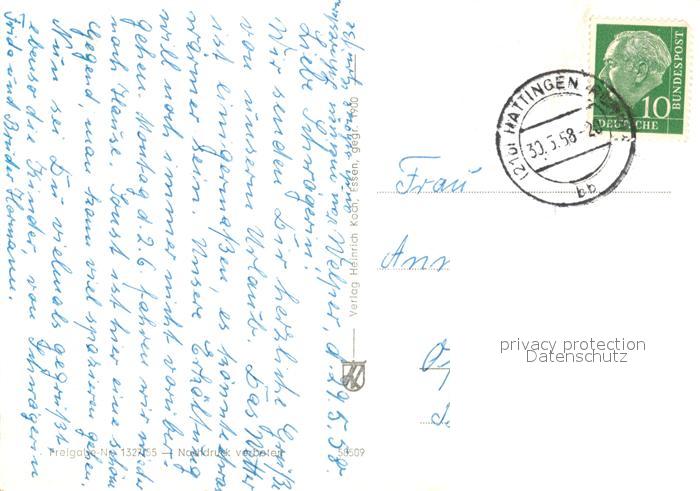 Welper, d. 29.5.58.
Liebe Schwägerin!
Wir senden Dir herzliche Grüße
von unserm Urlaub. Das Wetter
ist einigermaßen, es könnte etwas
wärmer sein. Unsere Erkältung
will noch immer nicht vorüber
gehen. Montag d. 2.6. fahren wir wieder
nach Hause. Sonst ist hier eine schöne
Gegend, und kann viel spazieren gehen.
Nun sei Du vielmals gegrüßt
ebenso die Kinder, von Schwägerin
Frida und Bruder Hermann.
Freigabe-Nr. 1327/55 — Nachdruck verboten
56509
Verlag Heinrich Koch, Essen, gegr. 1900
Frau
Ann
privacy protection
Datenschutz
(21b) HATTINGEN
30.5.58
bb
10
DEUTSCHE
BUNDESPOST